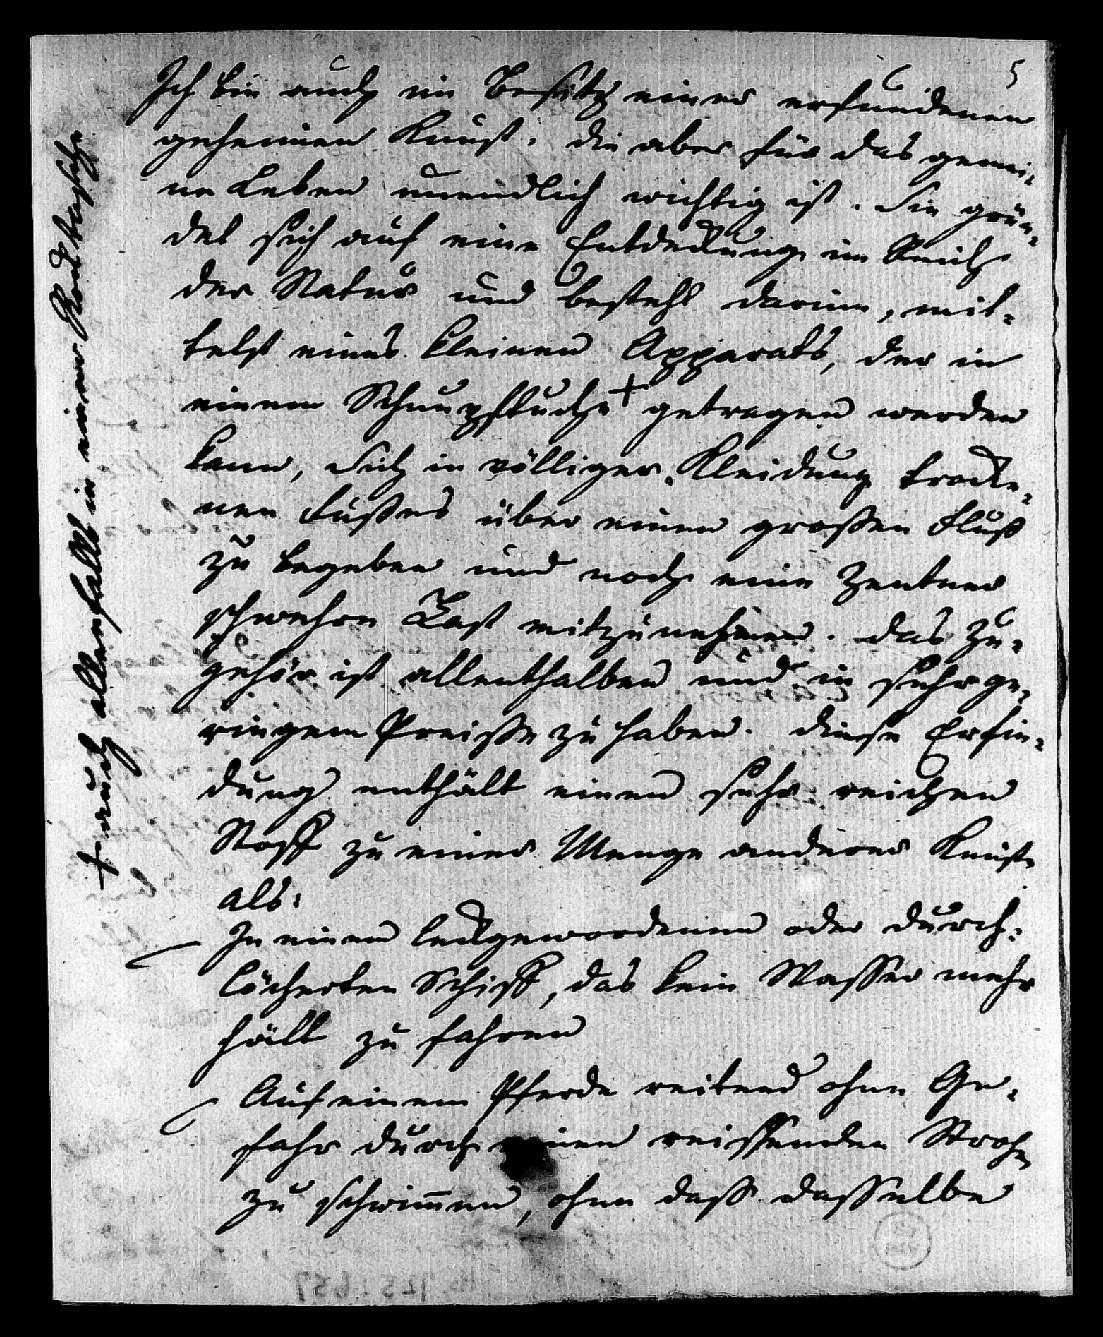 5
Ich bin auch im Besitz einer erfundenen
geheimen Kunst: die aber für das gemei-
ne Leben unendlich wichtig ist. Sie grün-
det sich auf eine Entdeckung im Reich
der Natur und besteht darinn, mit-
telst eines kleinen Apparats, der in
einem Schnupftuche + getragen werden
kann, sich in völliger Kleidung trocke-
nen Fußes über einen großen Fluß
zu begeben und noch eine Zentner
schwehre Last mitzunehmen. Das Zu-
gehör ist allenthalben und in sehr ge-
ringem Preiße zu haben. Diese Erfin-
dung enthält einen sehr reichen
Stoff zu einer Menge anderer Künste
als:
In einem leckgewordenen oder durch-
löcherten Schiff, das kein Wasser mehr
hält zu fahren
Auf einem Pferde reitend ohne Ge-
fahr durch einen reissenden Strohm
zu schwimmen, ohne daß dasselbe
+ auch allenfalls in einer Rocktasche